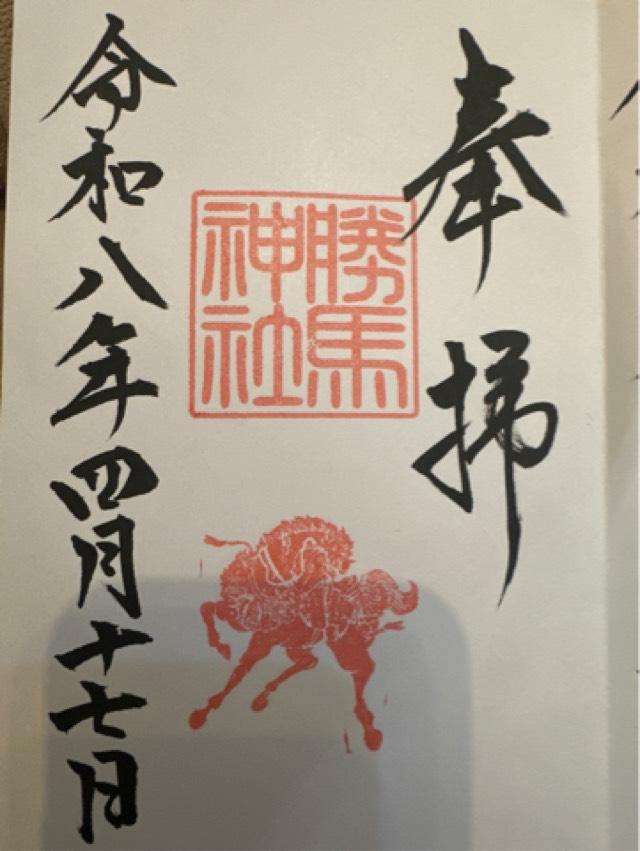 奉拝
勝馬
神社
令和八年四月十七日